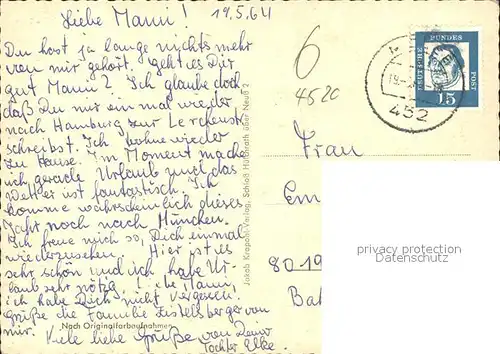 Liebe Mann! 19.5.64
Du hast ja lange nichts mehr
von mir gehört. geht es Dir
gut Mann? Ich glaube doch
daß Du mir ein mal wieder
nach Hamburg zur Lerchenstr
schreibst. Ich wohne wieder
zu Hause. Im Moment mache
ich gerade Urlaub und das
Wetter ist fantastisch. Ich
komme wahrscheinlich dieses
Jahr noch nach München.
Ich freue mich so, Dich einmal
wiederzusehen. Hier ist es
sehr schön und ich habe Ur-
laub sehr nötig. Liebe Mann,
ich habe Dich nicht vergessen.
Grüße die Familie von
mir.
Viele liebe Grüße von Deine
Tochter Elke.
Nach Originalfarbaufnahmen
Jakob Krapohl-Verlag, Schloß Hülchrath über Neuß 2
6
4520
DEUTSCHE BUNDES POST
15
452
Frau
Em
8019
Ba
privacy protection
Datenschutz